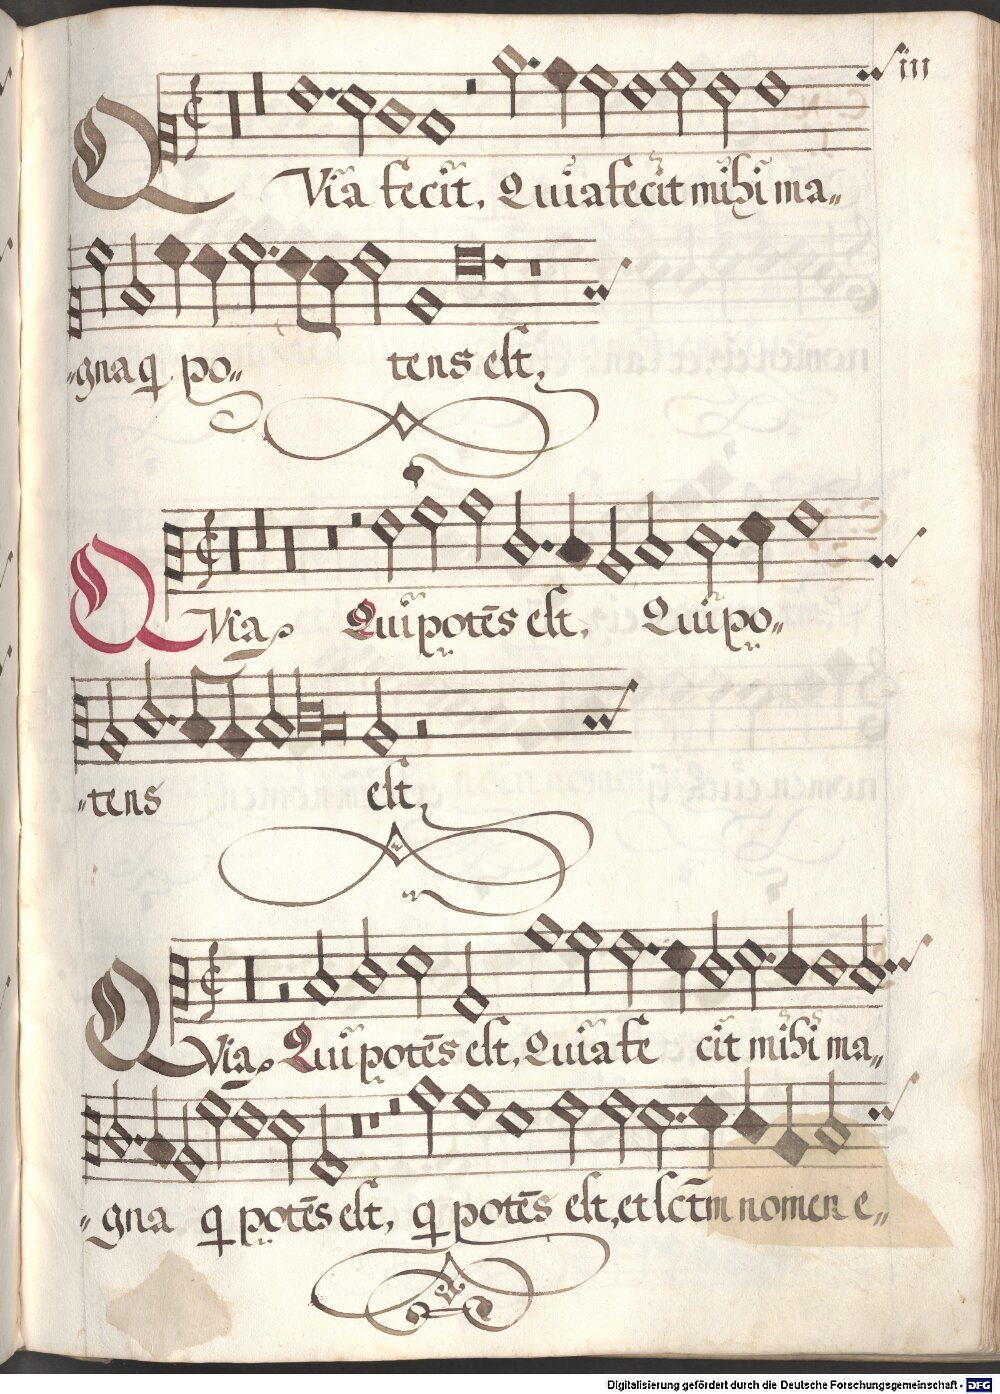 iii
QVia fecit, Quia fecit mihi ma„
„gna q̄ po„ tens est,
QVia Qui potēs est, Qui po„
„tens est,
QVia Qui potēs est, Quia fe cit mihi ma„
„gna q̄ potēs est, q̄ potēs est, et sctm nomen e„
Digitalisierung gefördert durch die Deutsche Forschungsgemeinschaft - DFG